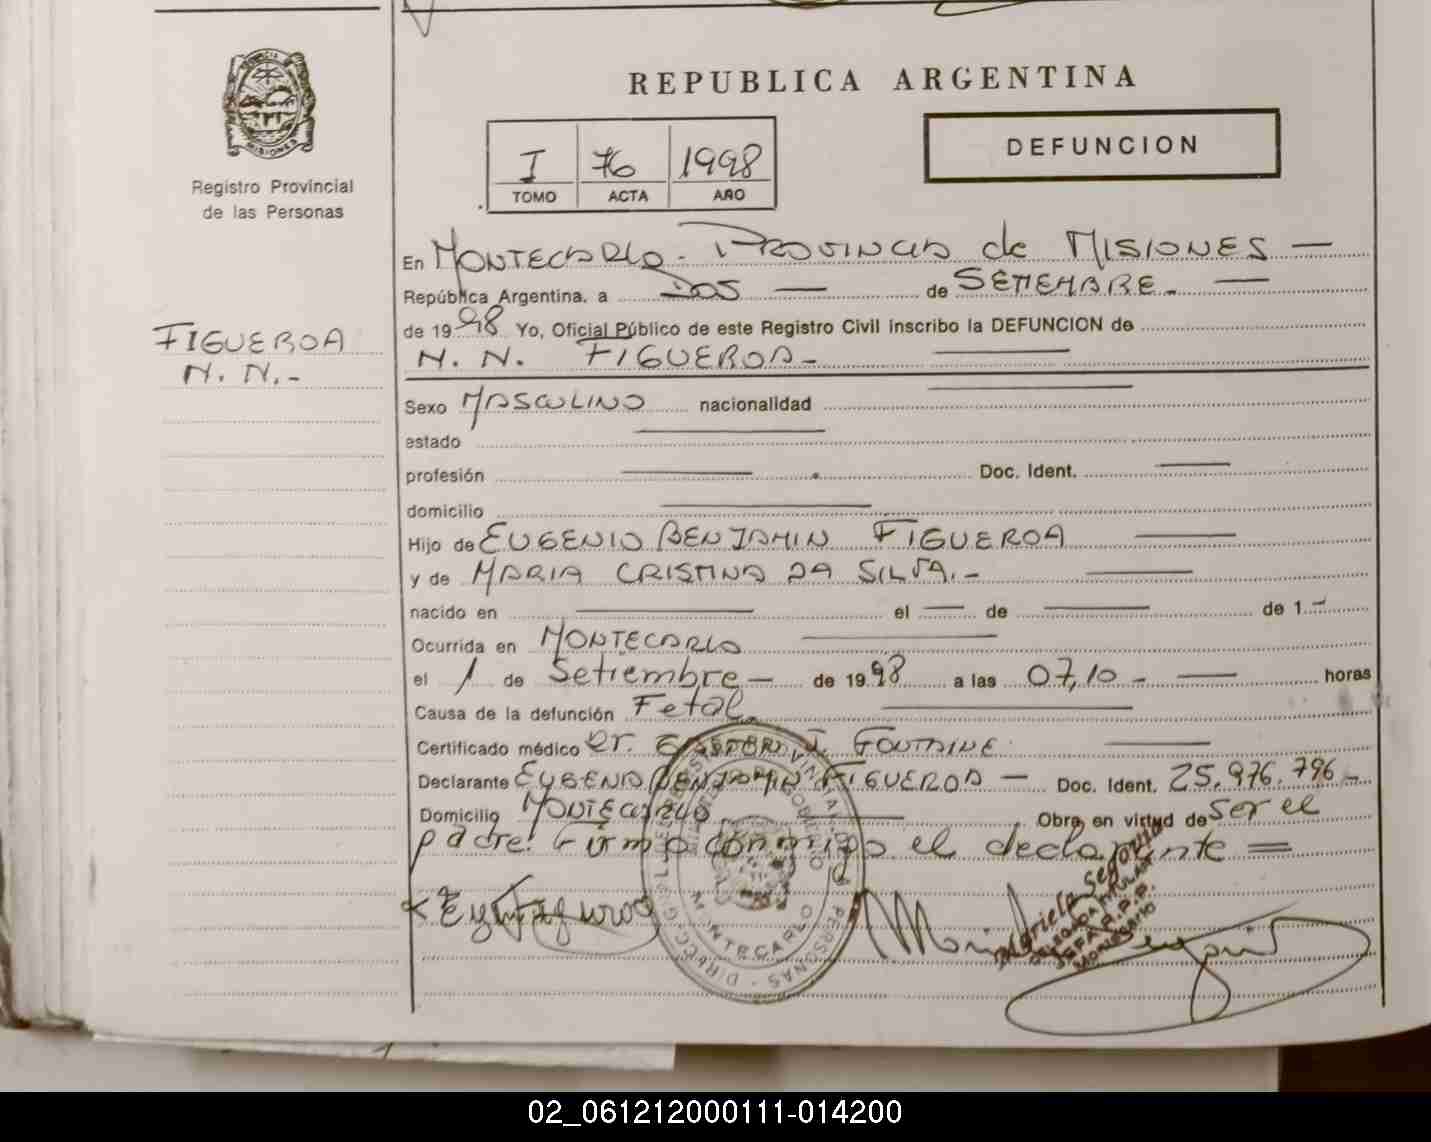 REPUBLICA ARGENTINA
PROVINCIA DE
MISIONES
Registro Provincial
de las Personas
I 76 1998
TOMO ACTA AÑO
DEFUNCION
En MONTECARLO - PROVINCIA de MISIONES —
República Argentina, a DOS — de SETIEMBRE. —
de 1998 Yo, Oficial Público de este Registro Civil inscribo la DEFUNCION de
N. N. FIGUEROA -
FIGUEROA
N. N. -
Sexo MASCULINO nacionalidad
estado
profesión Doc. Ident.
domicilio
Hijo de EUGENIO BENJAMIN FIGUEROA
y de MARIA CRISTINA DA SILVA. -
nacido en — el — de — de 1 -
Ocurrida en MONTECARLO
el 1 de Setiembre — de 1998 a las 07,10 - — horas
Causa de la defunción Fetal.
Certificado médico Dr. J. FONTAINE.
Declarante EUGENIO BENJAMIN FIGUEROA — Doc. Ident. 25.976.796 -
Domicilio MONTECARLO Obra en virtud de Ser el
padre. Firma conmigo el declarante =
MONTECARLO
PERSONAS
Mariela Segovia
DELEGADA TITULAR
JEFA R.P.P.
MONTECARLO
02_061212000111-014200